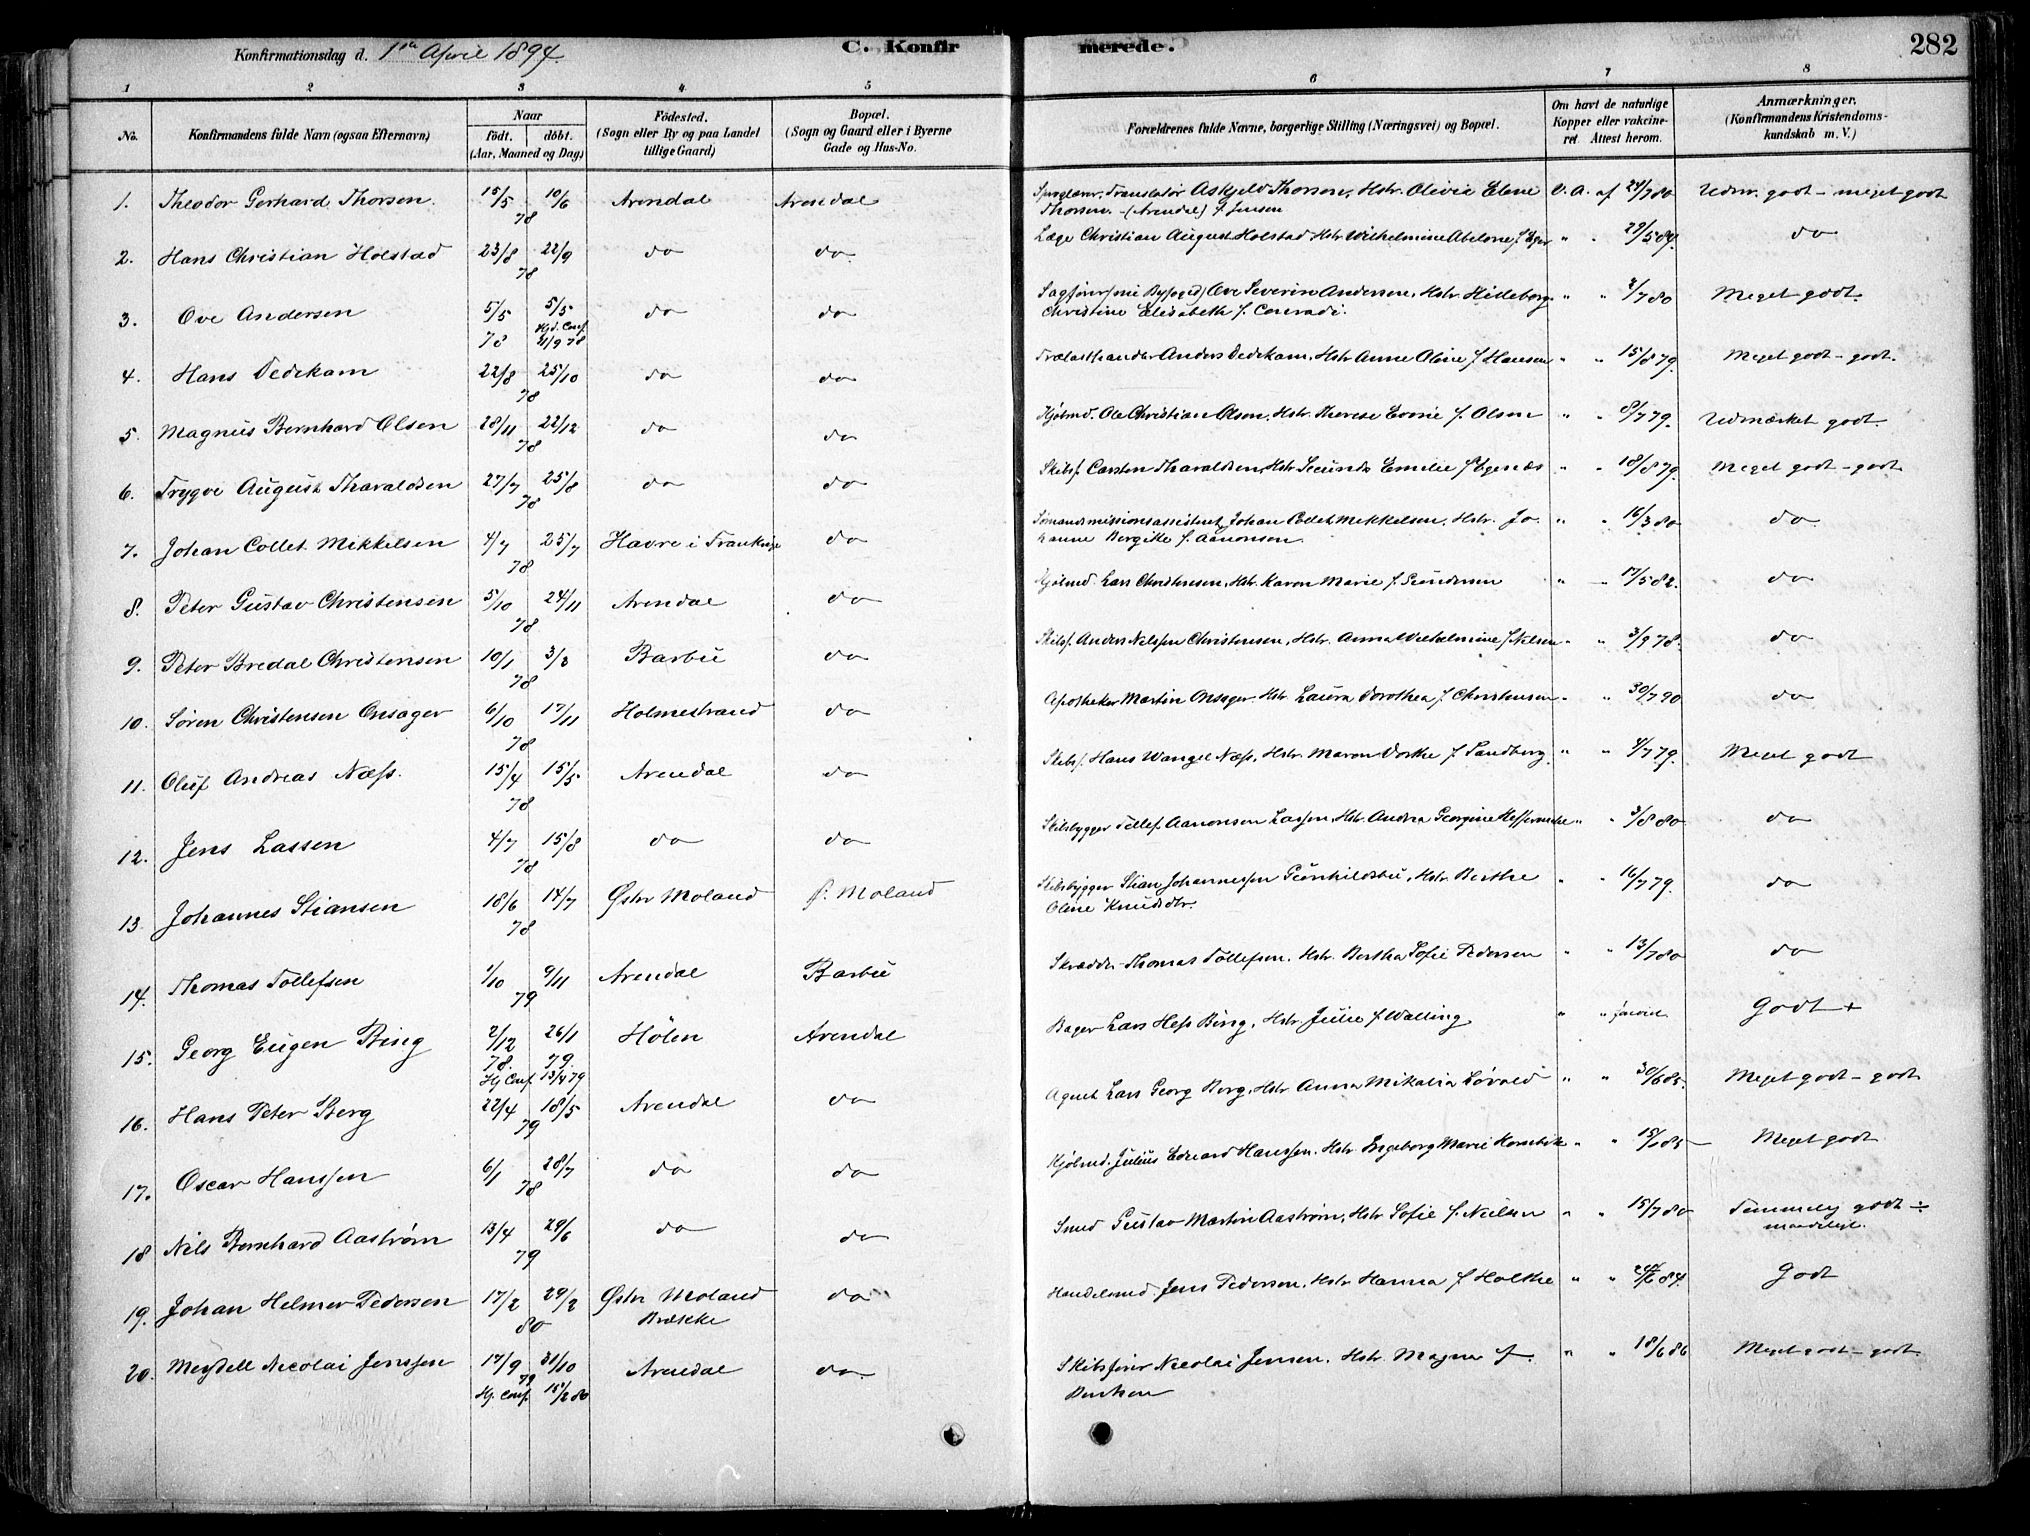 Konfirmationsdag d. 1ste April 1894. C. Konfirmerede. 282
1 2 3 4 5 6 7 8
No. Konfirmandens fulde Navn (ogsaa Efternavn) Naar født. døbt. (Aar, Maaned og Dag) Fødested. (Sogn eller By og paa Landet tillige Gaard) Bopæl. (Sogn og Gaard eller i Byerne Gade og Hus-No. Forældrenes fulde Navne, borgerlige Stilling (Næringsvei) og Bopæl. Om havt de naturlige Kopper eller vakcineret. Attest herom. Anmærkninger. (Konfirmandens Kristendomskundskab m. V.)
1. Theodor Gerhard Thorsen. 15/5 10/6 78 Arendal Arendal Translatør Askjeld Thorson, Hstr. Olivie Elene Thorsen. (Arendal) f. Jensen V. A. af 24/7 80 Udm. godt - meget godt
2. Hans Christian Holstad 23/8 22/9 78 do do Læge Christian August Holstad Hstr Wilhelmine Abelone f. Eger " " 29/5 84. do
3. Ove Andersen 5/5 5/5 78 Hj.d. Conf. 21/9 78 do do Sagfører Ove Severin Andersen, Hstr Hildeborg Christine Elisabeth f. Conradi. " " 2/7 80 Meget godt.
4. Hans Dedekam 22/8 25/10 78 do do Trælasthandler Anders Dedekam, Hstr Anne Oline f Hansen " " 15/8 79. Meget godt - godt.
5. Magnus Bernhard Olsen 28/11 22/12 78 do do Kjølmd. Ole Christian Olsen. Hstr. Therese Evine f. Olsen " " 8/7 79. Udmærket godt.
6. Trygve August Tharaldsen 27/7 25/8 78 do do Skibsf. Carsten Tharaldsen, Hstr Secunda Emilie f. Egenæs " " 18/8 79. Meget godt - godt
7. Johan Collet Mikkelsen 4/7 25/7 78 Havre i Frankrige do Sømandsmissionsassistent Johan Collet Mikkelsen, Hstr. Johanne Bergitte f. Aanonsen. " " 16/3 80 do
8. Peter Gustav Christensen 5/10 24/11 78 Arendal do Kjølmd. Lars Christensen, Hstr Karen Marie f Gundersen " " 17/5 82. do
9. Peter Bredal Christensen 10/1 3/3 78 Barbu do Skibsf. Anders Nilssen Christensen, Hstr. Anna Wilhelmine f. Nilsen " " 3/9 78. do
10. Søren Christensen Onsager 6/10 17/11 78 Holmestrand do Apotheker Martin Onsager Hstr Laura Dorothea f. Christensen " " 30/7 90 do
11. Oluf Andreas Næss. 15/4 15/5 78 Arendal do Skibsf. Hans Wangel Næss, Hstr. Maren Dorthe f Sandberg " " 4/7 79. Meget godt
12. Jens Lassen 4/7 15/8 78 do do Skibsbygger Tellef Aanonsen Lassen, Hstr Andrea Georgine " " 3/8 80 do
13. Johannes Stiansen 18/6 14/7 78 Østr Moland Ø. Moland Skibsbygger Stian Johannessen Gunhildsbu, Hstr Berthe Oline Knudsdtr. " " 16/7 79. do
14. Thomas Tollefsen 1/10 9/11 79 Arendal Barbu Skrædder Thomas Tollefsen. Hstr Bertha Sofie Pedersen " " 13/7 80 do
15. Georg Eugen Bing 2/12 78. 26/1 79. Hj Conf. 13/4 79 Hølen Arendal Bager Lars Hess Bing, Hstr. Julie f Walling " " Godt +
16. Hans Peter Berg 22/4 18/5 79 Arendal do Agent Lars Georg Berg, Hstr Anna Mikalia Løvold " " 30/6 85. Meget godt - godt
17. Oscar Hanssen 6/1 28/7 78 do do Kjølmd. Julius Edvard Hanssen. Hstr Ingeborg Marie " " Meget godt
18 Nils Bernhard Aastrøm 13/4 29/6 79 do do Smed Gustav Martin Aastrøm, Hstr Sofie f. Nielsen " " 15/7 80 Temmelig godt ÷ maadelig.
19. Johan Helmer Pedersen 17/2 29/2 80 Østr Moland Brække do Handelsmd Jens Pedersen, Hstr Hanna f Holthe " " 24/6 84. Godt
20. Meydell Nicolai Jenssen 17/9 31/10 79 Hj. Conf. 15/2 80 Arendal do Skibsfører Nicolai Jensen. Hstr. Magna f. Bentsen " " 18/6 86 Meget godt - godt